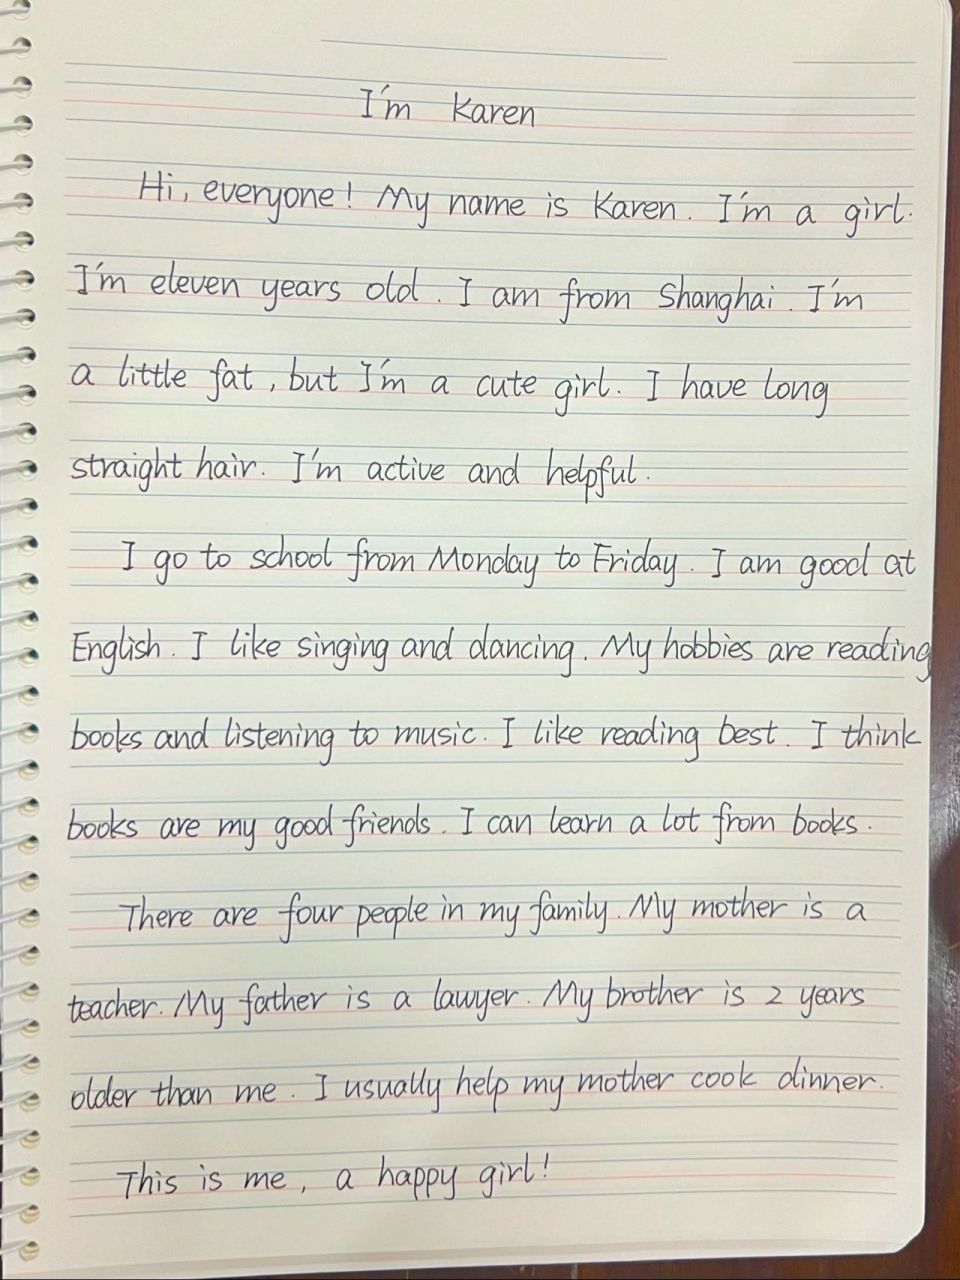 I'm Karen
Hi, everyone! My name is Karen. I'm a girl.
I'm eleven years old. I am from Shanghai. I'm
a little fat, but I'm a cute girl. I have long
straight hair. I'm active and helpful.
I go to school from Monday to Friday. I am good at
English. I like singing and dancing. My hobbies are reading
books and listening to music. I like reading best. I think
books are my good friends. I can learn a lot from books.
There are four people in my family. My mother is a
teacher. My father is a lawyer. My brother is 2 years
older than me. I usually help my mother cook dinner.
This is me, a happy girl!